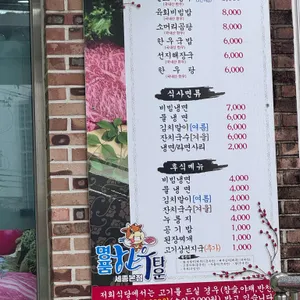 육회비빔밥 8,000
소머리곰탕 8,000
한우국밥 6,000
선지해장국 6,000
한우탕 6,000
식사면류
비빔냉면 7,000
물냉면 6,000
김치말이(여름) 6,000
잔치국수(겨울) 6,000
냉면/라면사리 2,000
후식메뉴
비빔냉면 4,000
물냉면 4,000
김치말이(여름) 4,000
잔치국수(겨울) 4,000
누룽지 1,000
공기밥 1,000
된장찌개 1,000
고기상선지국(추가) 1,000
명품한우타운
세종본점
저희식당에서는 고기를 드실 경우